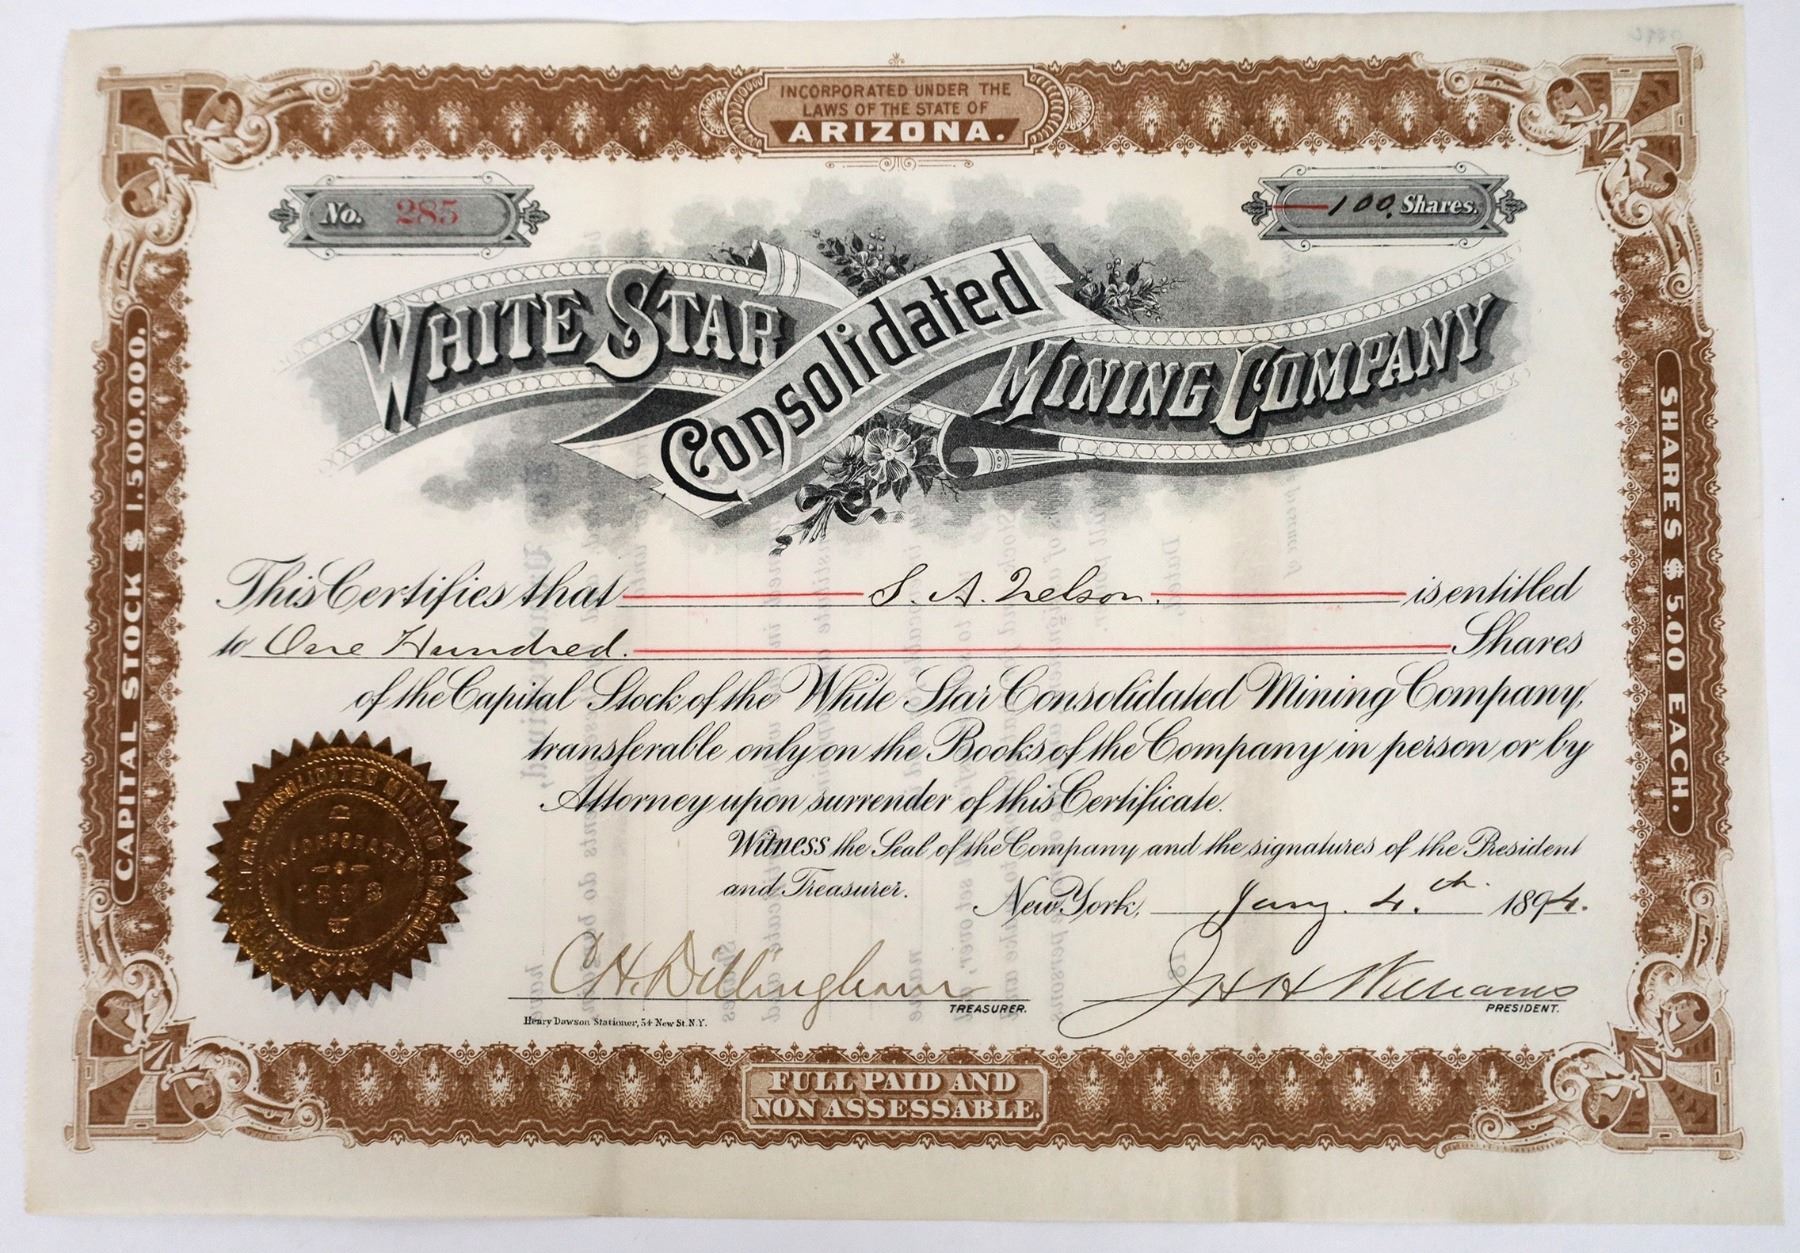 INCORPORATED UNDER THE
LAWS OF THE STATE OF
ARIZONA.
No. 285
100. Shares.
WHITE STAR Consolidated MINING COMPANY
CAPITAL STOCK $ 1.500.000.
SHARES $ 5.00 EACH.
This Certifies that S. A. Nelson. is entitled
to One Hundred. Shares
of the Capital Stock of the White Star Consolidated Mining Company,
transferable only on the Books of the Company in person or by
Attorney upon surrender of this Certificate.
Witness the Seal of the Company and the signatures of the President
and Treasurer.
New York, Jany. 4.th 1894.
STAR CONSOLIDATED MINING COMPANY
INCORPORATED
C. H. Dillingham
TREASURER.
Williams
PRESIDENT.
Henry Dawson Stationer, 54 New St. N.Y.
FULL PAID AND
NON ASSESSABLE.